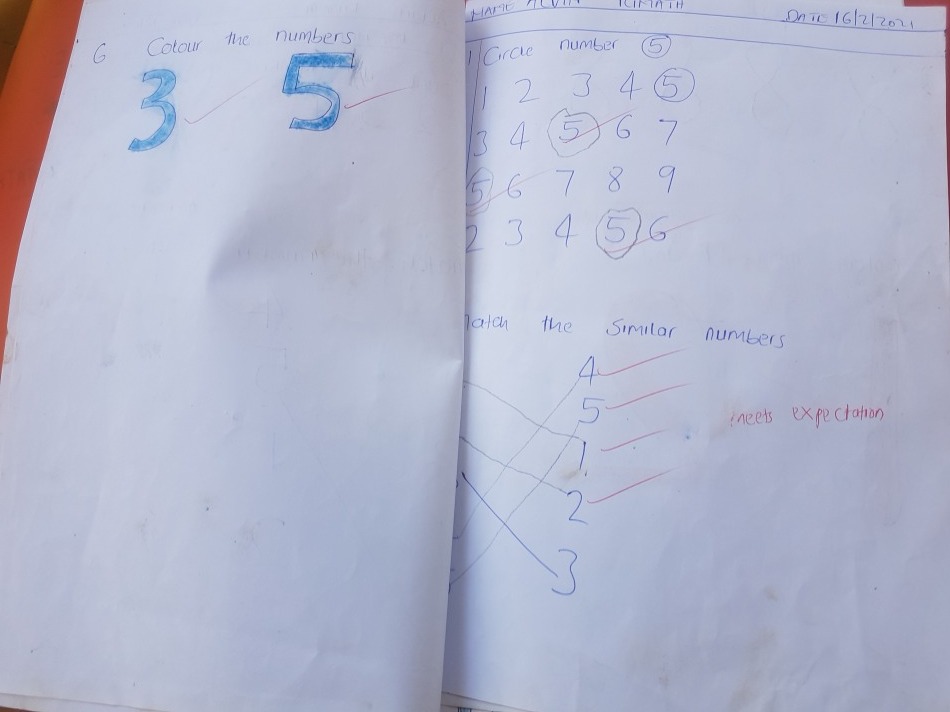 6 Colour the numbers
3 5
ALVIN DATE 16/2/2021
1 Circle number 5
1 2 3 4 5
3 4 5 6 7
5 6 7 8 9
2 3 4 5 6
match the similar numbers
4
5
meets expectation
1
2
3